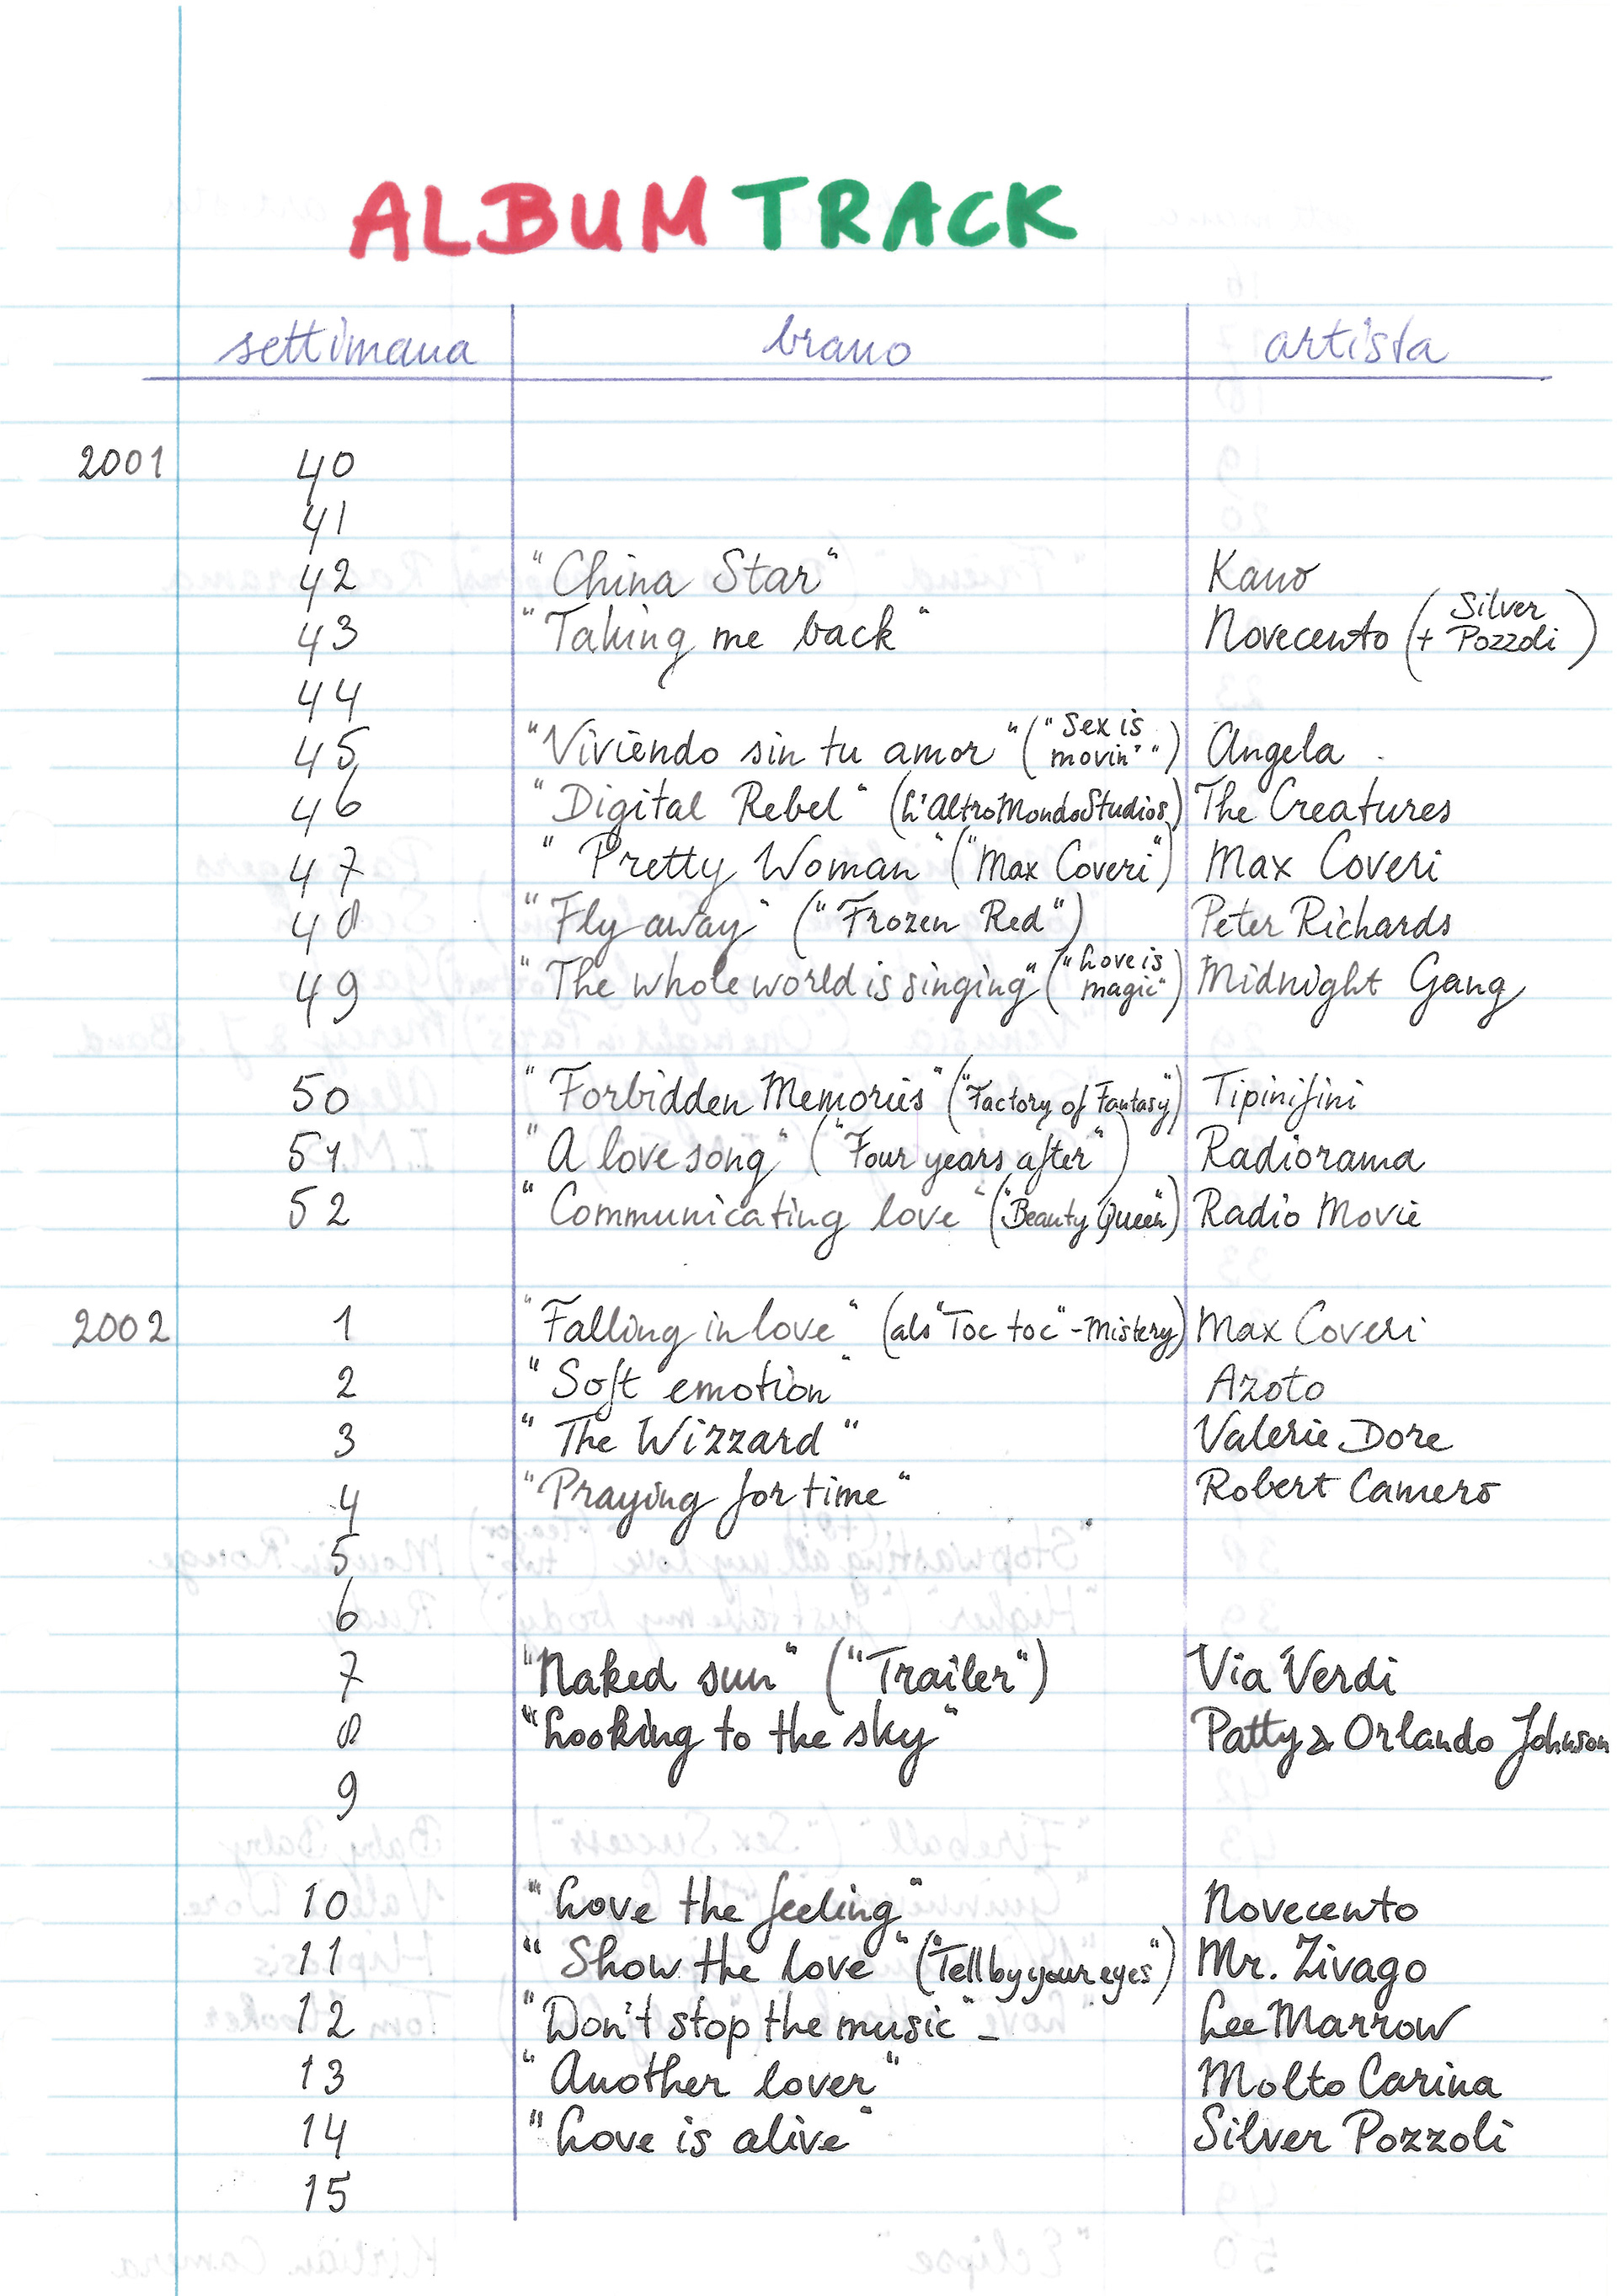 ALBUM TRACK
settimana brano artista
2001 40
41
42 "China Star" Kano
43 "Taking me back" Novecento (+ Silver Pozzoli)
44
45 "Viviendo sin tu amor" ("Sex is movin'") Angela
46 "Digital Rebel" (L'AltroMondoStudios) The Creatures
47 "Pretty Woman" ("Max Coveri") Max Coveri
48 "Fly away" ("Frozen Red") Peter Richards
49 "The whole world is singing" ("Love is magic") Midnight Gang
50 "Forbidden Memories" ("Factory of Fantasy") Tipinifini
51 "A love song" ("Four years after") Radiorama
52 "Communicating love" ("Beauty Queen") Radio Movie
2002 1 "Falling in love" (als "Toc toc" - Mistery) Max Coveri
2 "Soft emotion" Azoto
3 "The Wizzard" Valerie Dore
4 "Praying for time" Robert Camero
5
6
7 "Naked sun" ("Trailer") Via Verdi
8 "Looking to the sky" Patty & Orlando Johnson
9
10 "Love the feeling" Novecento
11 "Show the love" ("Tell by your eyes") Mr. Zivago
12 "Don't stop the music" - Lee Marrow
13 "Another lover" Molto Carina
14 "Love is alive" Silver Pozzoli
15